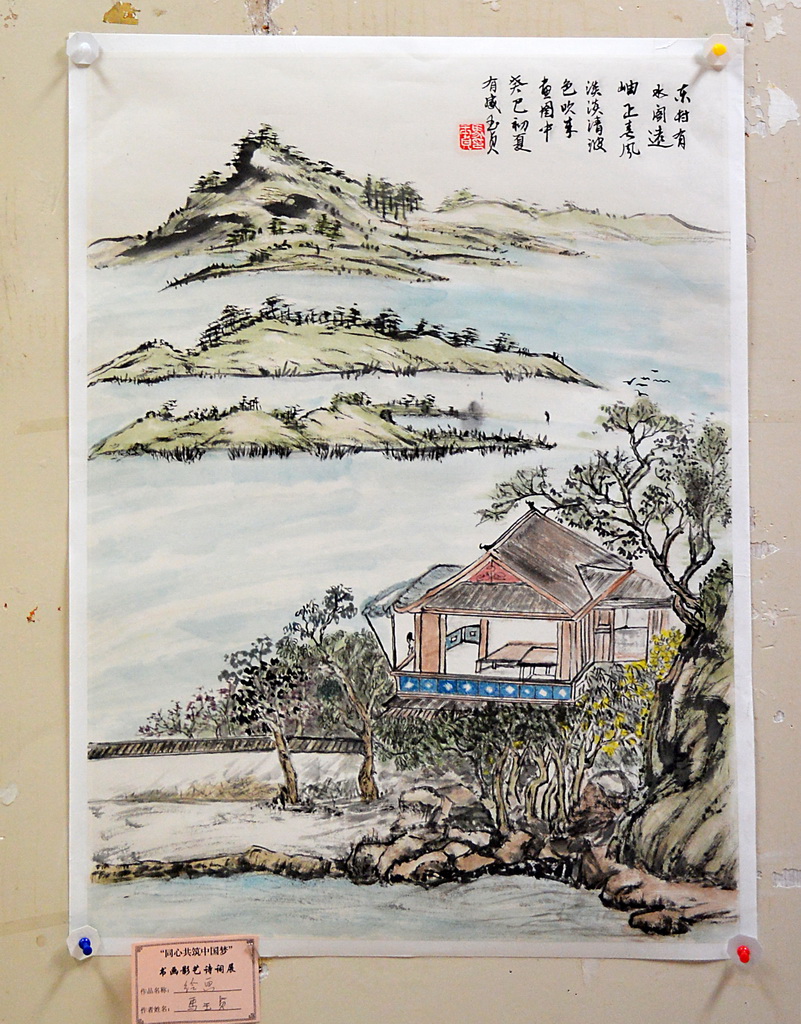 东村有
水阁远
岫正春风
淡淡清波
色吹来
画图中
癸巳初夏
有感玉贞
“同心共筑中国梦”
书画影艺诗词展
作品名称: 绘画
作者姓名: 马玉贞